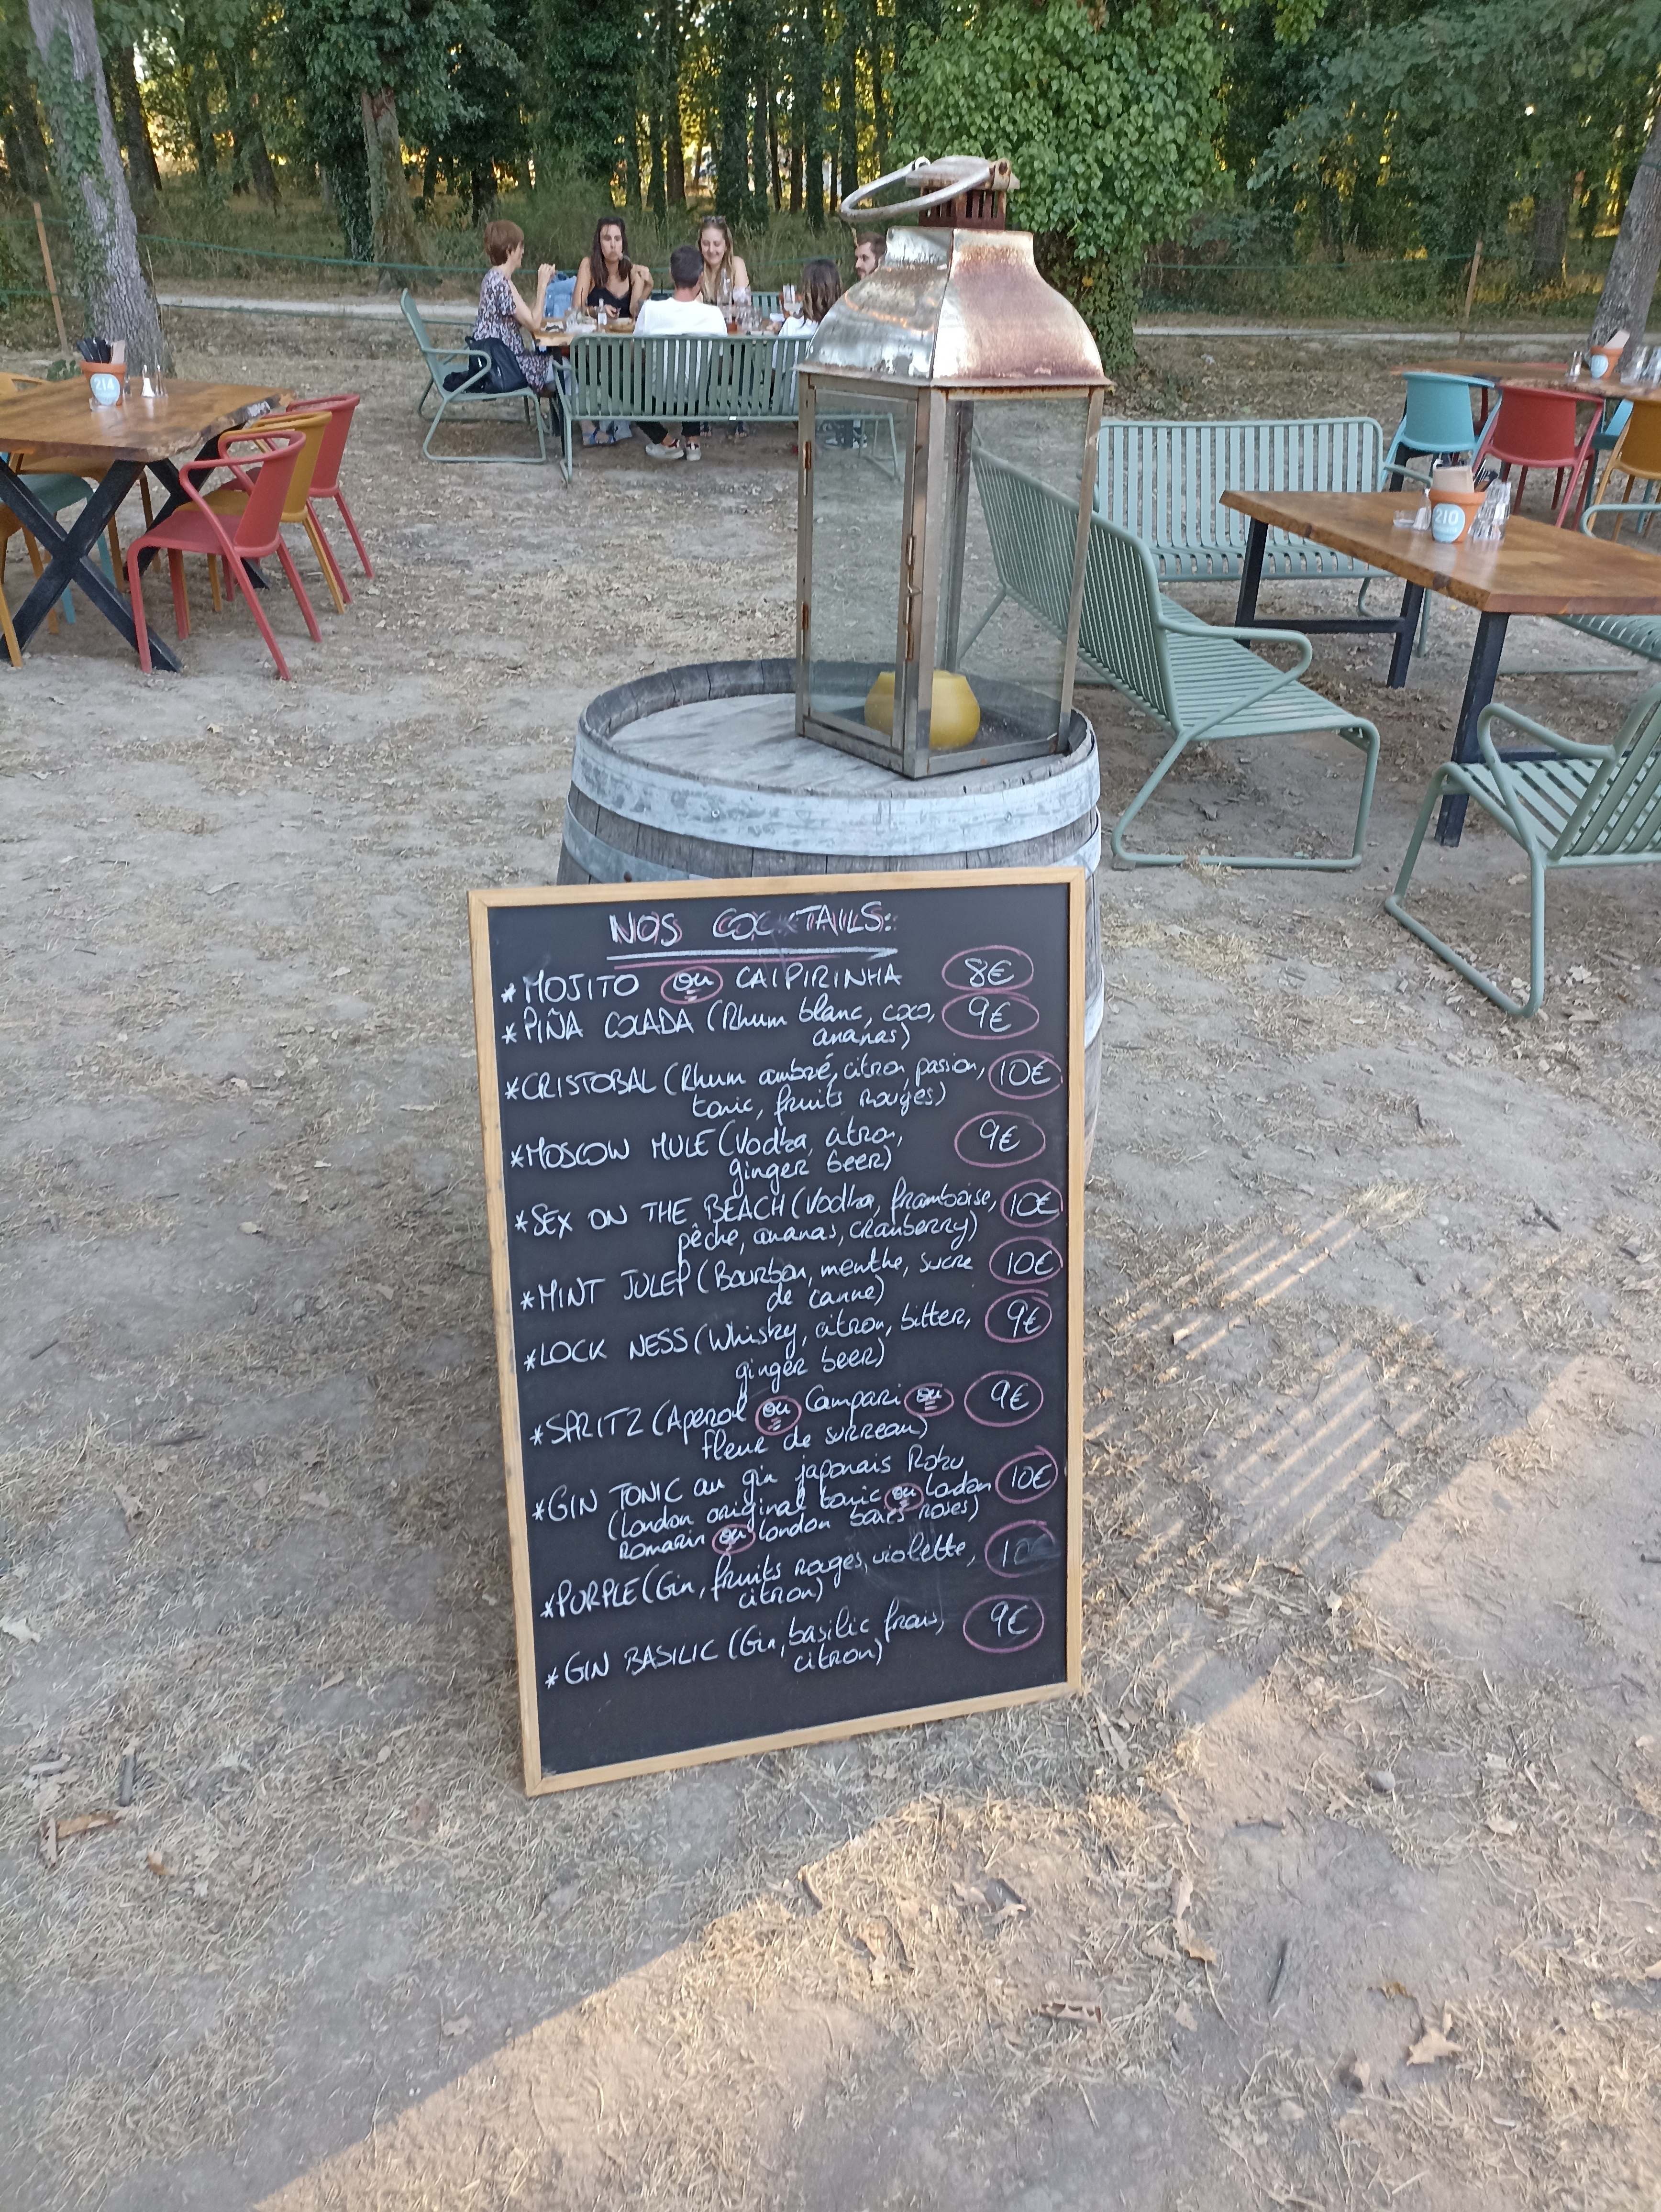 214
210
NOS COCKTAILS:
* MOJITO ou CAIPIRINHA 8€
* PIÑA COLADA (Rhum blanc, coco, 9€
ananas)
* CRISTOBAL (Rhum ambré, citron, passion, 10€
tonic, fruits rouges)
* MOSCOW MULE (Vodka, citron, 9€
ginger beer)
* SEX ON THE BEACH (Vodka, framboise, 10€
pêche, ananas, cranberry)
* MINT JULEP (Bourbon, menthe, sucre 10€
de canne)
* LOCK NESS (Whisky, citron, bitter, 9€
ginger beer)
* SPRITZ (Aperol ou Campari ou 9€
fleur de surreau)
* GIN TONIC au gin japonais Roku
(London original tonic ou London 10€
Romarin ou London baies roses)
* PURPLE (Gin, fruits rouges, violette,
citron)
* GIN BASILIC (Gin, basilic frais, 9€
citron)